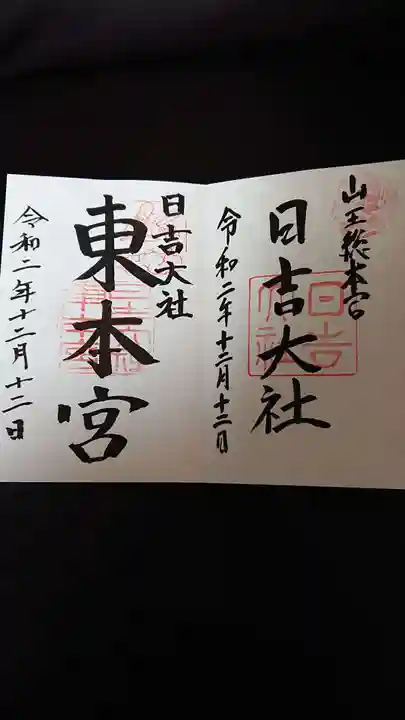 山王総本宮
日吉大社
日吉大社
令和二年十二月十二日
日吉大社
東本宮
令和二年十二月十二日